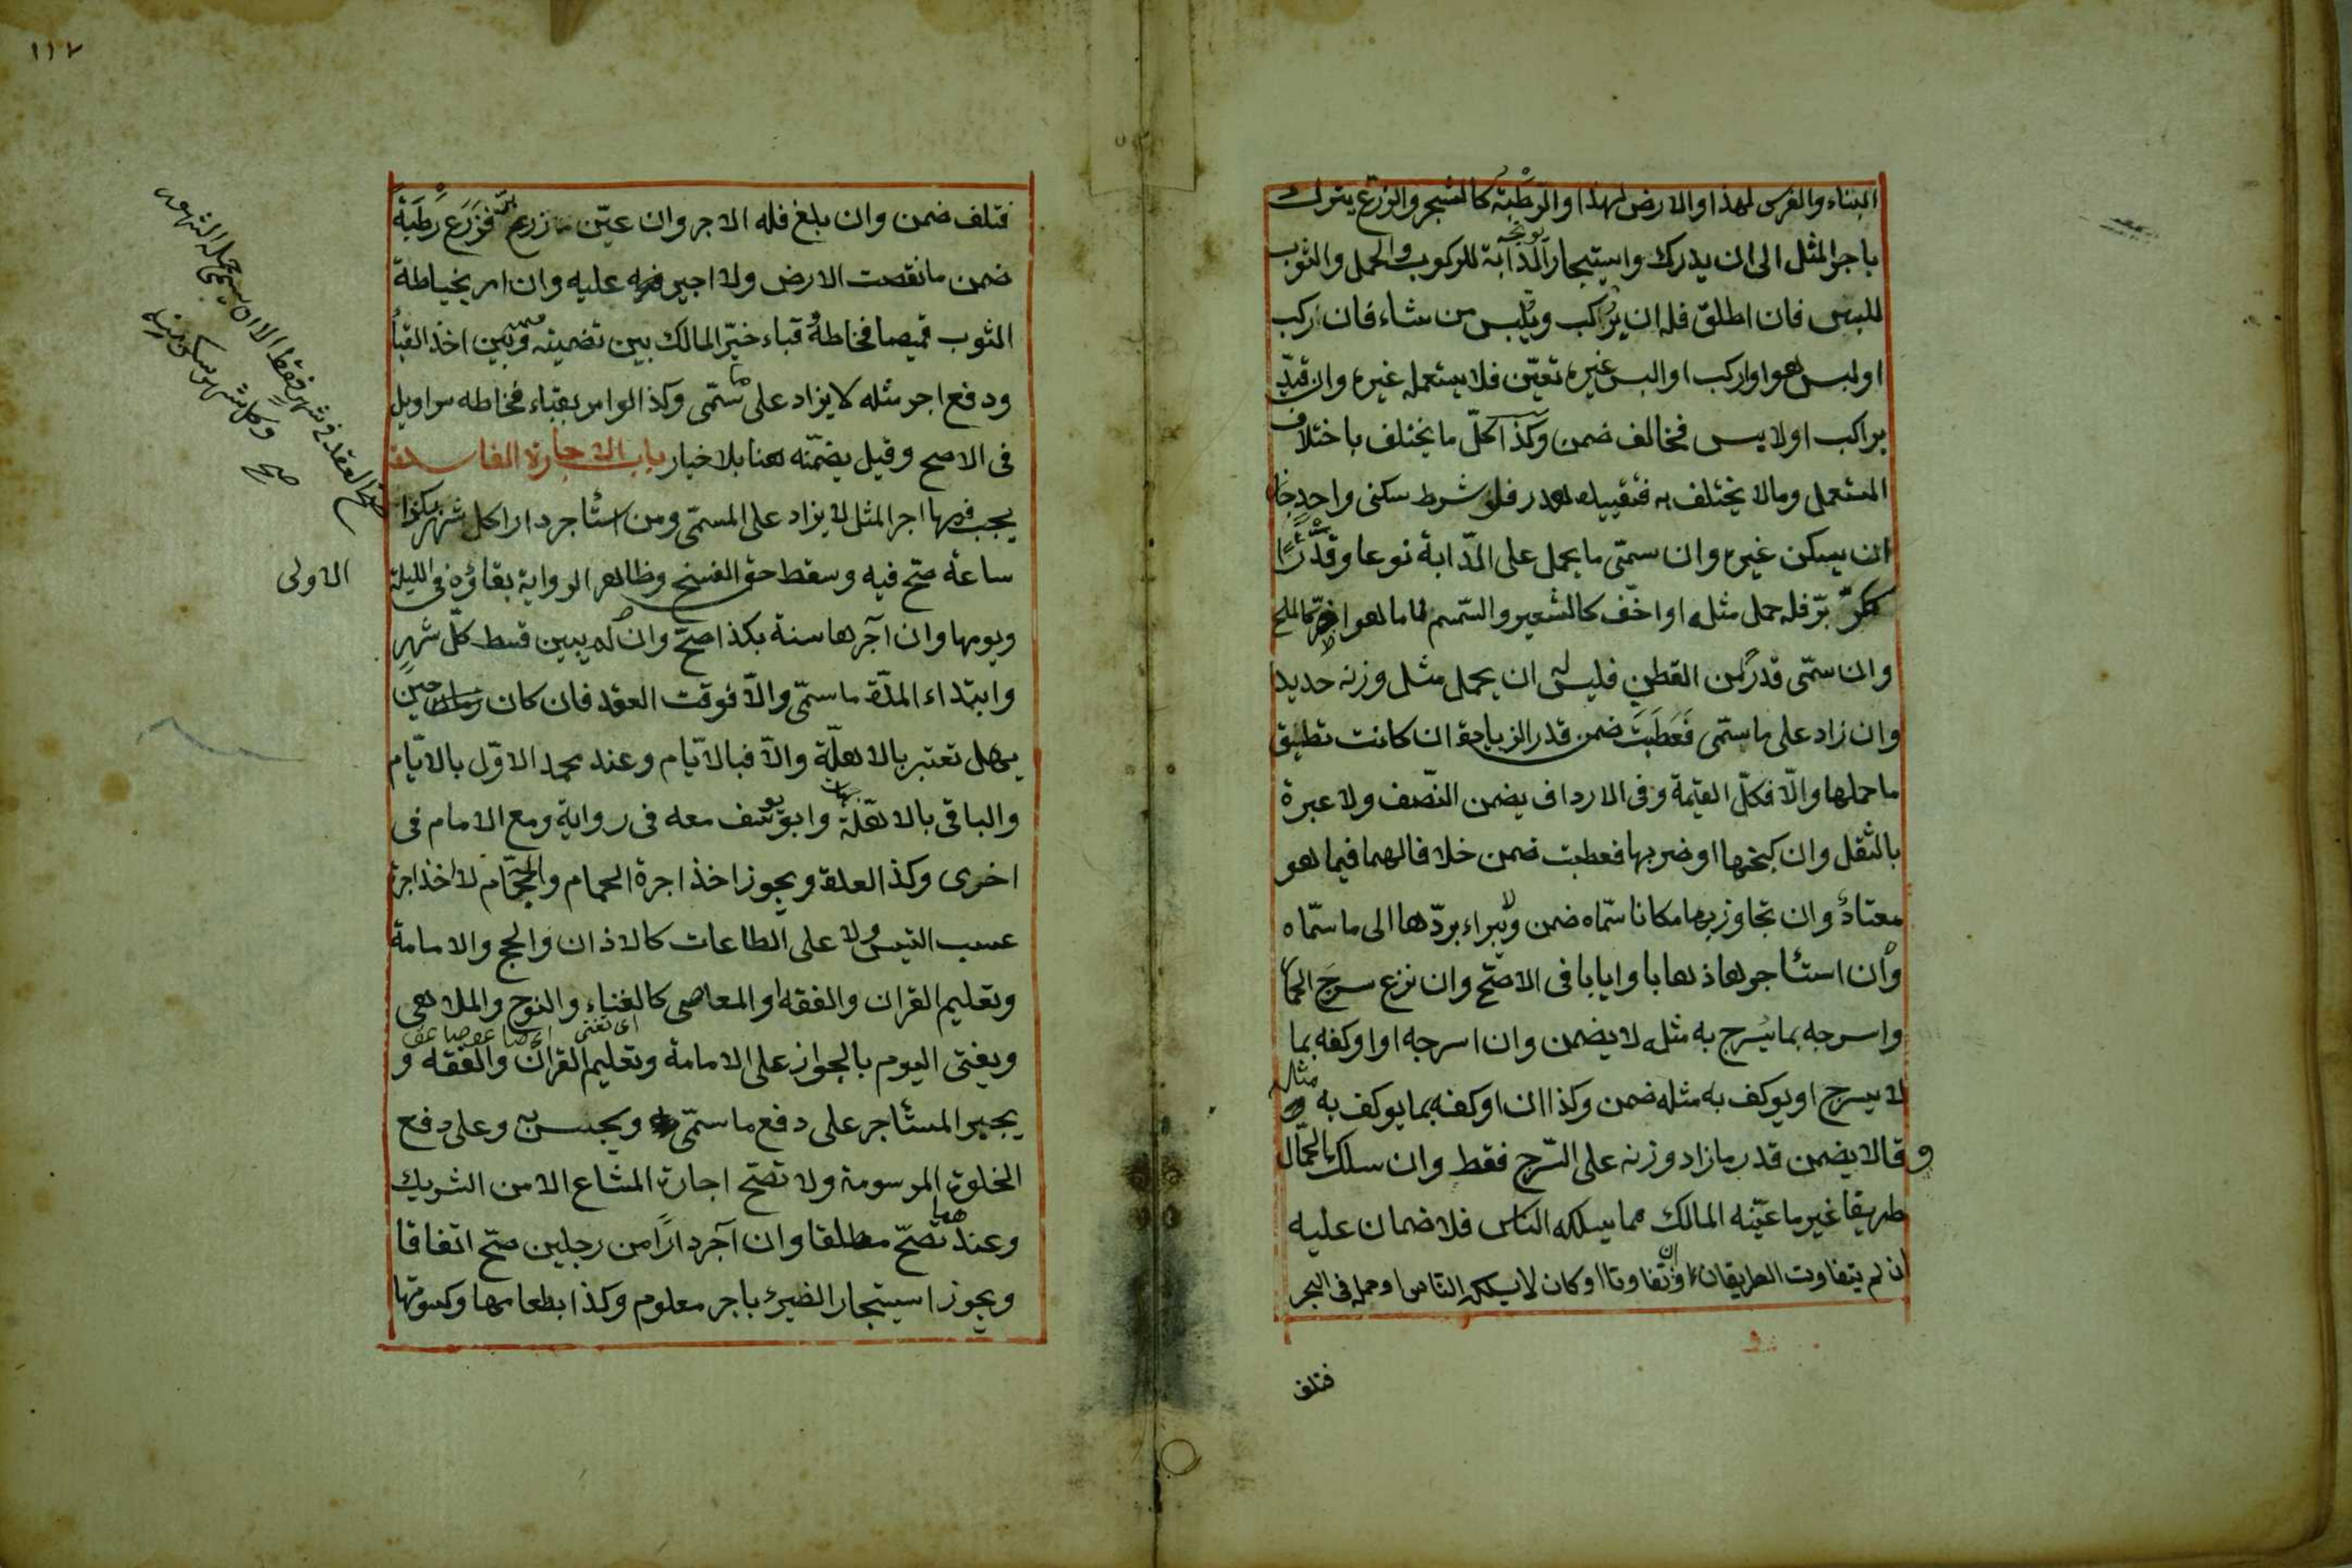 البناء والغرس لهذا والارض لهذا والرطبة كالشجر والزرع يترك
باجر المثل الى ان يدرك واستيجار الدابة للركوب والحمل والثوب
للبس فان اطلق فله ان يركب ويلبس من شاء فان ركب
او لبس هو او اركب او البس غيره تعين فلا يستعمله غيره وان قيد
براكب او لابس فخالف ضمن وكذا كل ما يختلف باختلاف
المستعمل وما لا يختلف به فتقييده هدر فلو شرط سكنى واحد جاز
ان يسكن غيره وان سمى ما يحمل على الدابة نوعا وقدرا
ككر بر فله حمل مثله او اخف كالشعير والسمسم لا ما هو اضر كالملح
وان سمى قدرا من القطن فليس له ان يحمل مثل وزنه حديدا
وان زاد على ما سمى فعطبت ضمن قدر الزيادة ان كانت تطيق
ما حملها والا فكل القيمة وفى الارداف يضمن النصف ولا عبرة
بالثقل وان كبحها او ضربها فعطبت ضمن خلافا لهما فيما هو
معتاد وان تجاوز بها مكانا سماه ضمن ولا يبراء بردها الى ما سماه
وان استئاجرها ذهابا وايابا فى الاصح وان نزع سرج الحمار
واسرجه بما يسرج به مثله لا يضمن وان اسرجه او اوكفه بما
لا يسرج او يوكف به مثله ضمن وكذا ان اوكفه بما يوكف به مثله
وقالا يضمن قدر ما زاد وزنه على السرج فقط وان سلك الحمال
طريقا غير ما عينه المالك مما يسلكه الناس فلا ضمان عليه
ان لم يتفاوت الطريقان وان تفاوتا او كان لا يسلكه الناس او حمله فى البحر
فتلف
١١٧
فتلف ضمن وان بلغ فله الاجر وان عين زرع بر فزرع رطبة
ضمن ما نقصت الارض ولا اجر عليه وان امر بخياطة
الثوب قميصا فخاطه قباء خير المالك بين تضمينه وبين اخذ القباء
ودفع اجر مثله لا يزاد على ما سمى وكذا لو امر بقباء فخاطه سراويل
فى الاصح وقيل يضمنه هنا بلا خيار باب الاجارة الفاسدة
يجب فيها اجر المثل لا يزاد على المسمى ومن استئاجر دارا كل شهر بكذا
صح العقد فى شهر فقط الا ان يسمى جملة الشهور
وكل شهر سكن منه
صح
ساعة صح فيه وسقط حق الفسخ وظاهر الرواية بقاؤه فى الليلة
الاولى
ويومها وان آجرها سنة بكذا صح وان لم يبين قسط كل شهر
وابتداء المدة ما سمى والا فوقت العقد فان كان حين
يهل تعتبر بالاهلة والا فبالايام وعند محمد الاول بالايام
والباقى بالاهلة وابو يوسف معه فى رواية ومع الامام فى
اخرى وكذا العدة ويجوز اخذ اجرة الحمام والحجام لا اخذ اجرة
عسب التيس ولا على الطاعات كالاذان والحج والامامة
وتعليم القران والفقه او المعاصى كالغناء والنوح والملاهى
ويفتى اليوم بالجواز على الامامة وتعليم القران والفقه و
يجبر المستأجر على دفع ما سمى ويحبس به وعلى دفع
الحلوة المرسومة ولا تصح اجارة المشاع الا من الشريك
وعندهما تصح مطلقا وان آجر دارا من رجلين صح اتفاقا
ويجوز استيجار الظئر باجر معلوم وكذا بطعامها وكسوتها